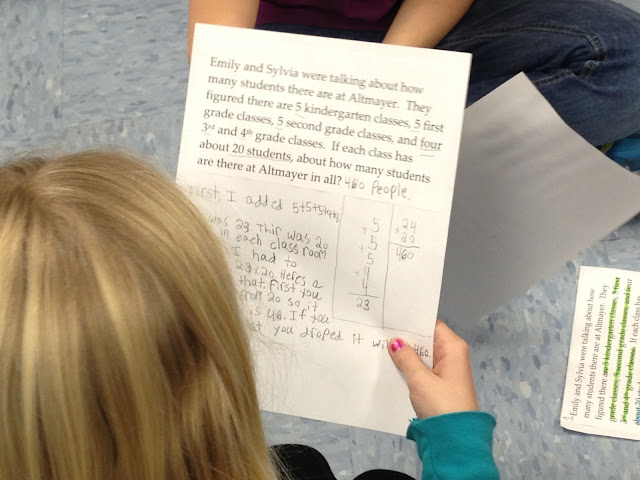 Emily and Sylvia were talking about how
many students there are at Altmayer. They
figured there are 5 kindergarten classes, 5 first
grade classes, 5 second grade classes, and four
3rd and 4th grade classes. If each class has
about 20 students, about how many students
are there at Altmayer in all? 460 People.
First, I added 5+5+5+4+4,
was 23 Thir was 20
in each class room
I had to
23x20. Heres a
that. First you
from 20 so it
is 46. If you
you droped it will 460.
5
+ 5
+ 5
+ 4
4
23
24
x 20
460
Emily and Sylvia were talking about how
many students there are at Altmayer. They
figured there are 5 kindergarten classes, 5 first
grade classes, 5 second grade classes, and four
3rd and 4th grade classes. If each class ha
about 20